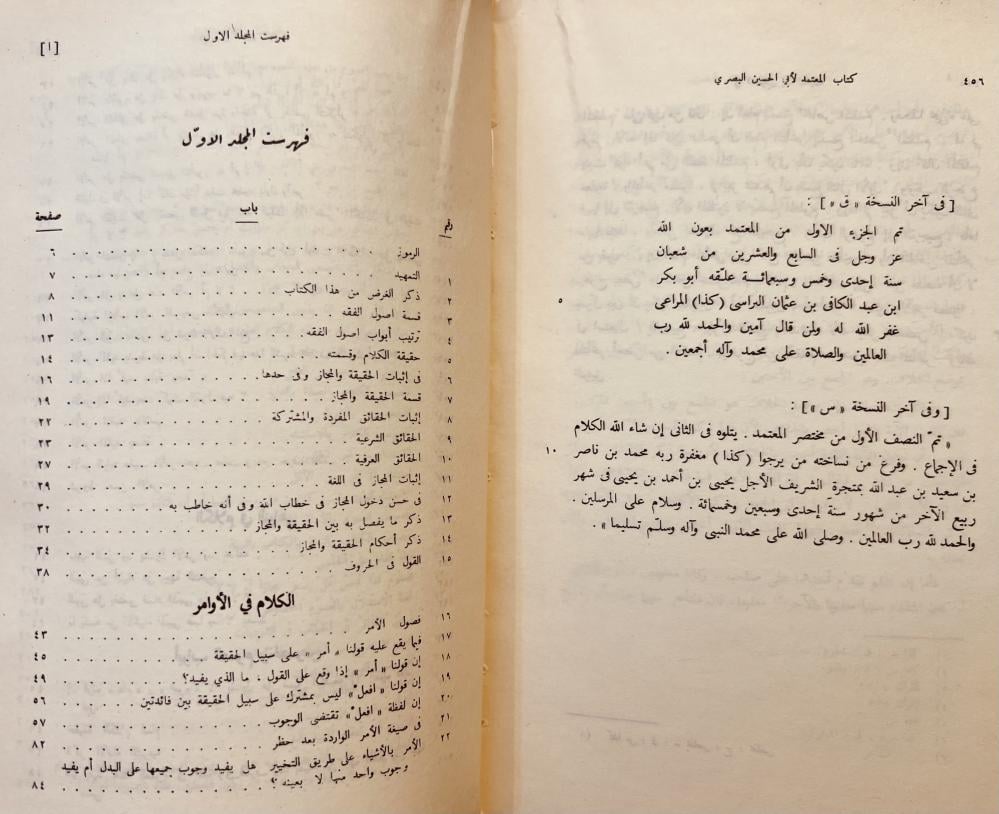 كتاب المعتمد لأبي الحسين البصري
٤٥٦
[ فى آخر النسخة « ق » ] :
تم الجزء الاول من المعتمد بعون الله
عز وجل فى السابع والعشرين من شعبان
سنة إحدى وخمس وسبعمائة علقه أبو بكر
ابن عبد الكافى بن عثمان البراسى ( كذا ) المراعى
٥
غفر الله له ولمن قال آمين والحمد لله رب
العالمين والصلاة على محمد وآله أجمعين .
[ وفى آخر النسخة « س »] :
« تمّ النصف الأول من مختصر المعتمد . يتلوه فى الثانى إن شاء الله الكلام
فى الإجماع . وفرغ من نساخته من يرجوا ( كذا ) مغفرة ربه محمد بن ناصر
١٠
بن سعيد بن عبد الله بمتجرة الشريف الأجل يحيى بن أحمد بن يحيى فى شهر
ربيع الآخر من شهور سنة إحدى وسبعين وخمسمائة . وسلام على المرسلين .
والحمد لله رب العالمين . وصلى الله على محمد النبى وآله وسلّم تسليما » .
فهرست المجلد الاول
[١]
فهرست المجلد الاوّل
رقم باب صفحة
الرموز ٦
١ التمهيد ٧
٢ ذكر الغرض من هذا الكتاب ٨
٣ قسمة اصول الفقه ١١
٤ ترتيب أبواب اصول الفقه ١٣
٥ حقيقة الكلام وقسمته ١٤
٦ فى إثبات الحقيقة والمجاز وفى حدها ١٦
٧ قسمة الحقيقة والمجاز ١٩
٨ إثبات الحقائق المفردة والمشتركة ٢٢
٩ الحقائق الشرعية ٢٣
١٠ الحقائق العرفية ٢٧
١١ إثبات المجاز فى اللغة ٢٩
١٢ فى حسن دخول المجاز فى خطاب الله وفى أنه خاطب به ٣٠
١٣ ذكر ما يفصل به بين الحقيقة والمجاز ٣٢
١٤ ذكر أحكام الحقيقة والمجاز ٣٤
١٥ القول فى الحروف ٣٨
الكلام في الأوامر
١٦ فصول الأمر ٤٣
١٧ فيما يقع عليه قولنا « أمر » على سبيل الحقيقة ٤٥
١٨ إن قولنا « أمر » إذا وقع على القول ، ما الذي يفيد؟ ٤٩
١٩ إن قولنا « افعل » ليس بمشترك على سبيل الحقيقة بين فائدتين ٥٦
٢٠ إن لفظة « افعل » تقتضى الوجوب ٥٧
٢١ فى صيغة الأمر الواردة بعد حظر ٨٢
٢٢ الأمر بالأشياء على طريق التخيير هل يفيد وجوب جميعها على البدل أم يفيد
وجوب واحد منها لا بعينه ؟ ٨٤